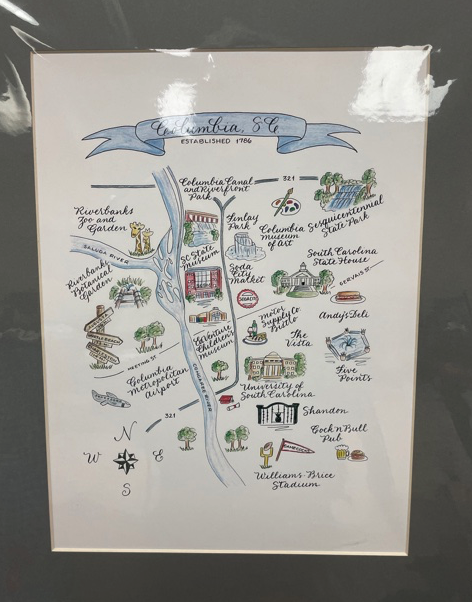 Columbia, SC
ESTABLISHED 1786
321
Columbia Canal
and Riverfront
Park
Riverbanks
Zoo and
Garden
Finlay
Park
Columbia
museum
of art
Sesquicentennial
State Park
SALUDA RIVER
SC State
Museum
South Carolina
State House
Riverbanks
Botanical
Garden
Soda
City
Market
GERVAIS ST.
Andy's Deli
Motor
Supply Co
Bistro
EdVenture
Children's
Museum
The
Vista
MEETING ST
Five
Points
Columbia
Metropolitan
Airport
CONGAREE RIVER
University of
South Carolina
321
Shandon
Cock n Bull
Pub
N
W
E
S
Williams-Brice
Stadium